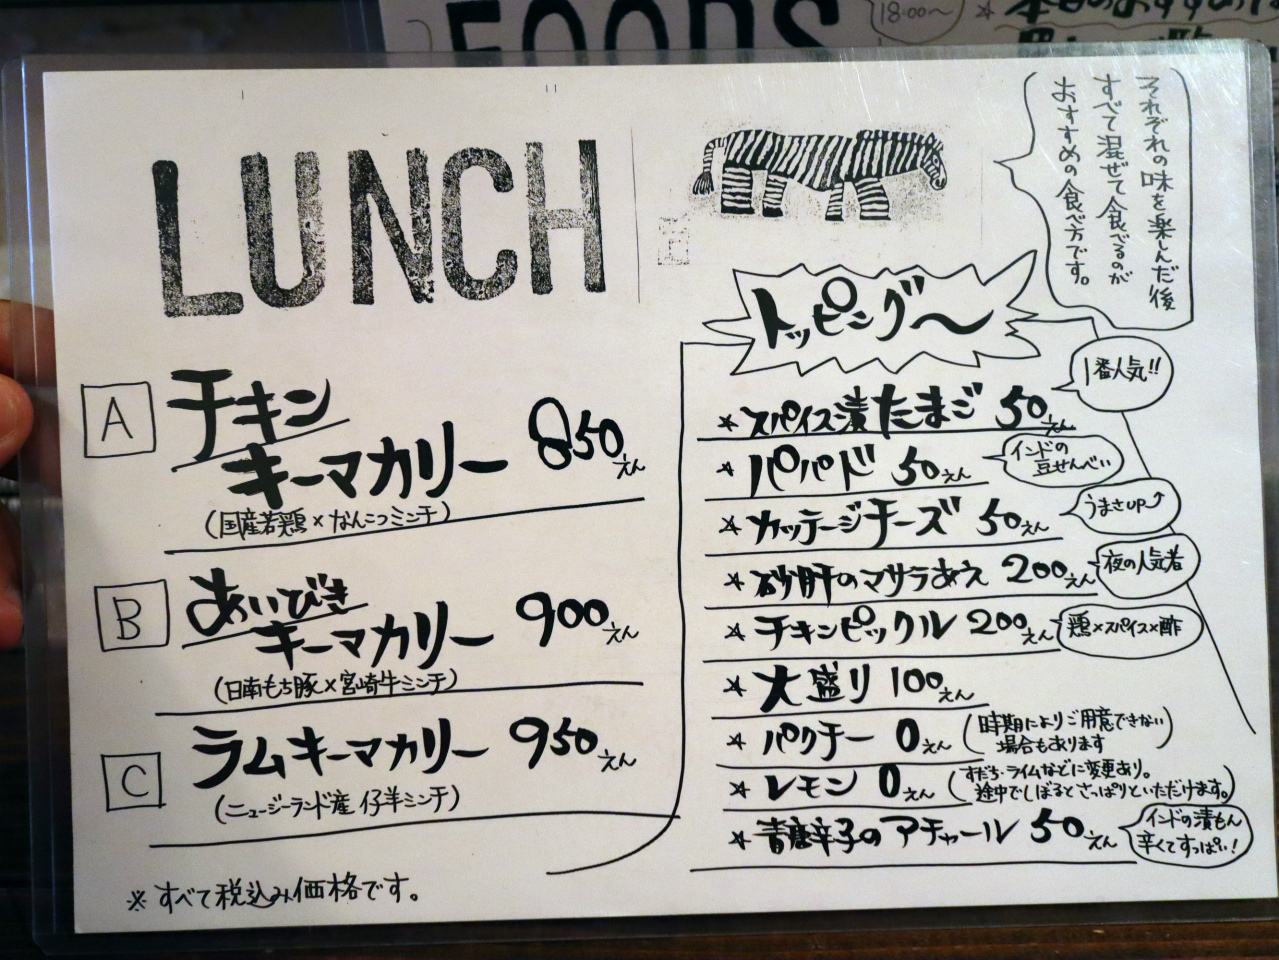 FOODS
18:00〜
LUNCH
それぞれの味を楽しんだ後
すべて混ぜて食べるのが
おすすめの食べ方です。
A
チキン
キーマカリー 850えん
(国産若鶏×なんこつミンチ)
B
あいびき
キーマカリー 900えん
(日南もち豚×宮崎牛ミンチ)
C
ラムキーマカリー 950えん
(ニュージーランド産 仔羊ミンチ)
※すべて税込み価格です。
トッピング〜
★スパイス漬たまご 50えん
1番人気!!
★パパド 50えん
インドの
豆せんべい
★カッテージチーズ 50えん
うまさUP⤴
★砂肝のマサラあえ 200えん
夜の人気者
★チキンピックル 200えん
鶏×スパイス×酢
★大盛り 100えん
★パクチー 0えん
(時期によりご用意できない
場合もあります)
★レモン 0えん
(すだち・ライムなどに変更あり。
途中でしぼるとさっぱりといただけます。)
★青唐辛子のアチャール 50えん
インドの漬もん
辛くてすっぱい!